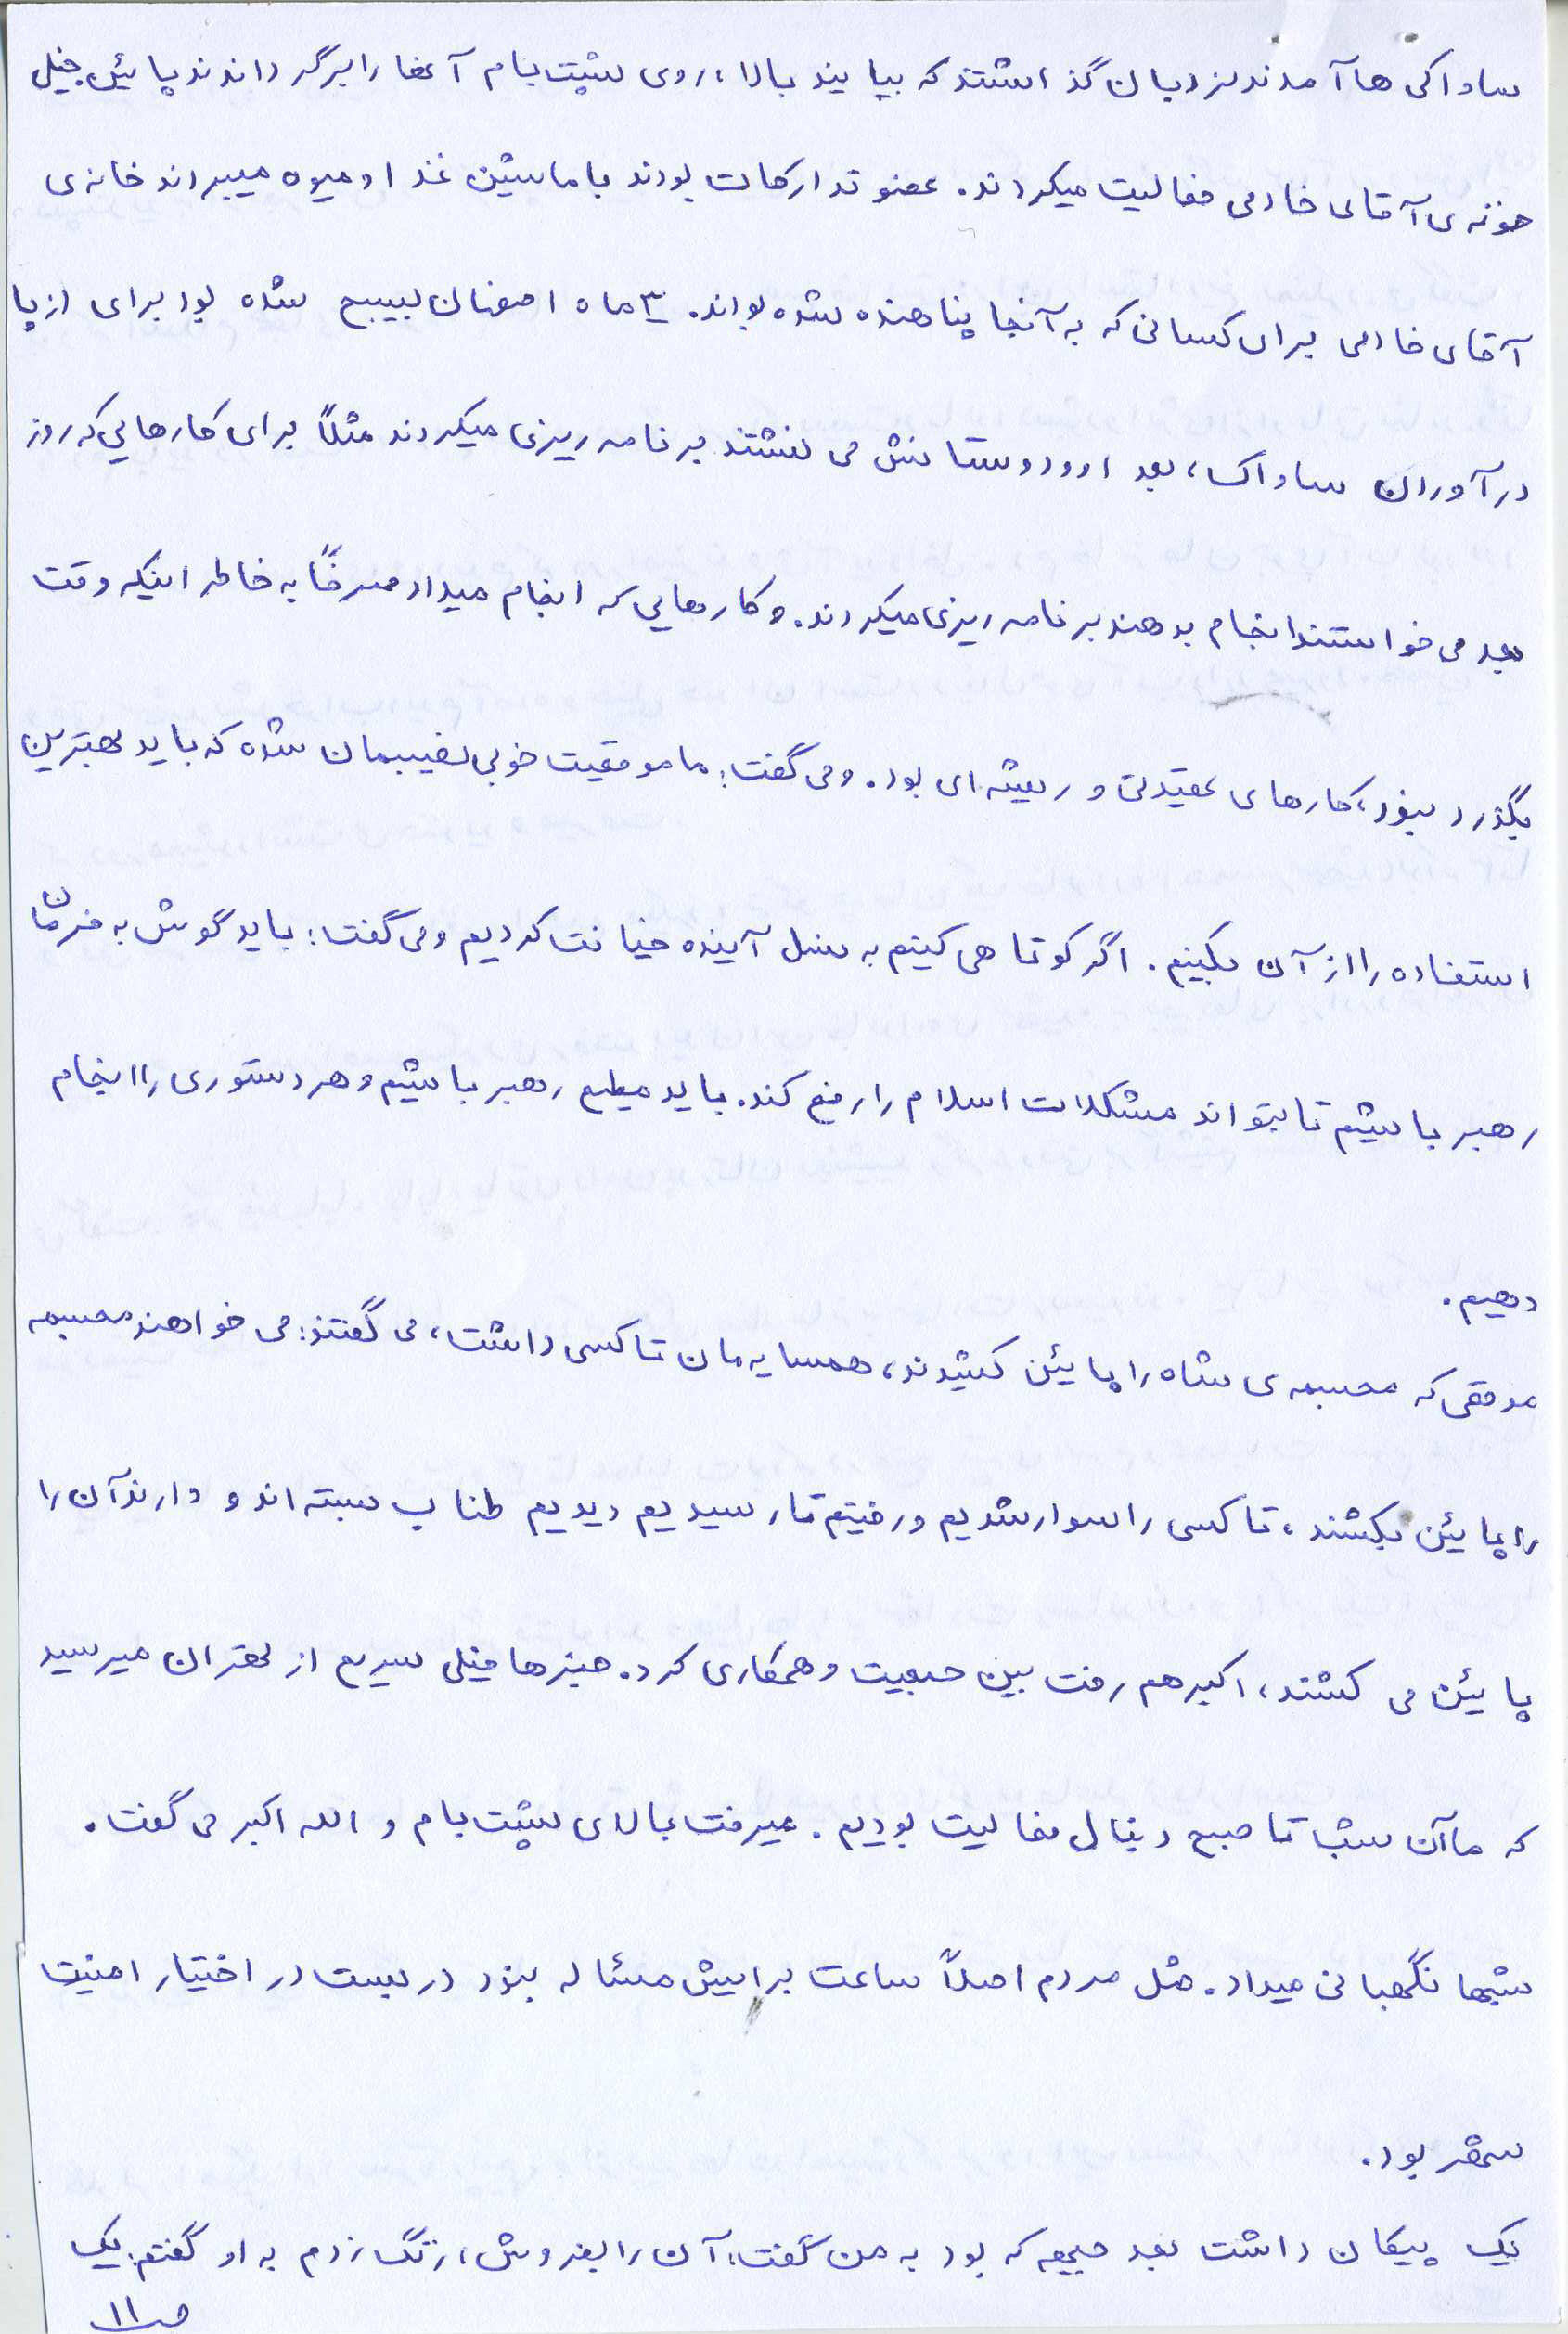 ساواکی ها آمدند نردبان گذاشتند که بیایند بالا، روی پشت بام آنها را برگرداندند پائین خیلی
خونه ی آقای خادمی فعالیت میکردند. عضو تدارکات بودند با ماشین غذا و میوه میبراند خانه ی
آقای خادمی برای کسانی که به آنجا پناهنده شده بواند. ۳ ماه اصفهان بسیج شده بود برای از پا
درآوران ساواک، بعد او و دوستانش می نشتند برنامه ریزی میکردند مثلاً برای کارهایی که روز
بعد می خواستند انجام بدهند برنامه ریزی میکردند. و کارهایی که انجام میداد صرفاً به خاطر اینکه وقت
بگذرد نبود، کارهای عقیدتی و ریشه ای بود. و می گفت: ما موقعیت خوبی نصیبمان شده که باید بهترین
استفاده را از آن بکنیم. اگر کوتاهی کنیم به نسل آینده خیانت کردیم و می گفت: باید گوش به فرمان
رهبر باشیم تا بتواند مشکلات اسلام را رفع کند. باید مطیع رهبر باشیم و هر دستوری را انجام
دهیم.
موقعی که مجسمه ی شاه را پایئن کشیدند، همسایه مان تاکسی داشت، می گفتند: می خواهند مجسمه
را پایئن بکشند، تاکسی را سوار شدیم و رفتیم تا رسیدیم دیدیم طناب بسته اند و دارند آن را
پایئن می کشند، اکبر هم رفت بین جمعیت و همکاری کرد. خبرها خیلی سریع از تهران میرسید
که ما آن شب تا صبح دنبال فعالیت بودیم. میرفت بالای پشت بام و الله اکبر می گفت.
شبها نگهبانی میداد. مثل مردم اصلاً ساعت برایش مسئاله نبود دربست در اختیار امنیت
شهر بود.
یک پیکان داشت بعد جمعه که بود به من گفت: آن را بفروش، زنگ زدم به او گفتم: یک
ص ۱۱